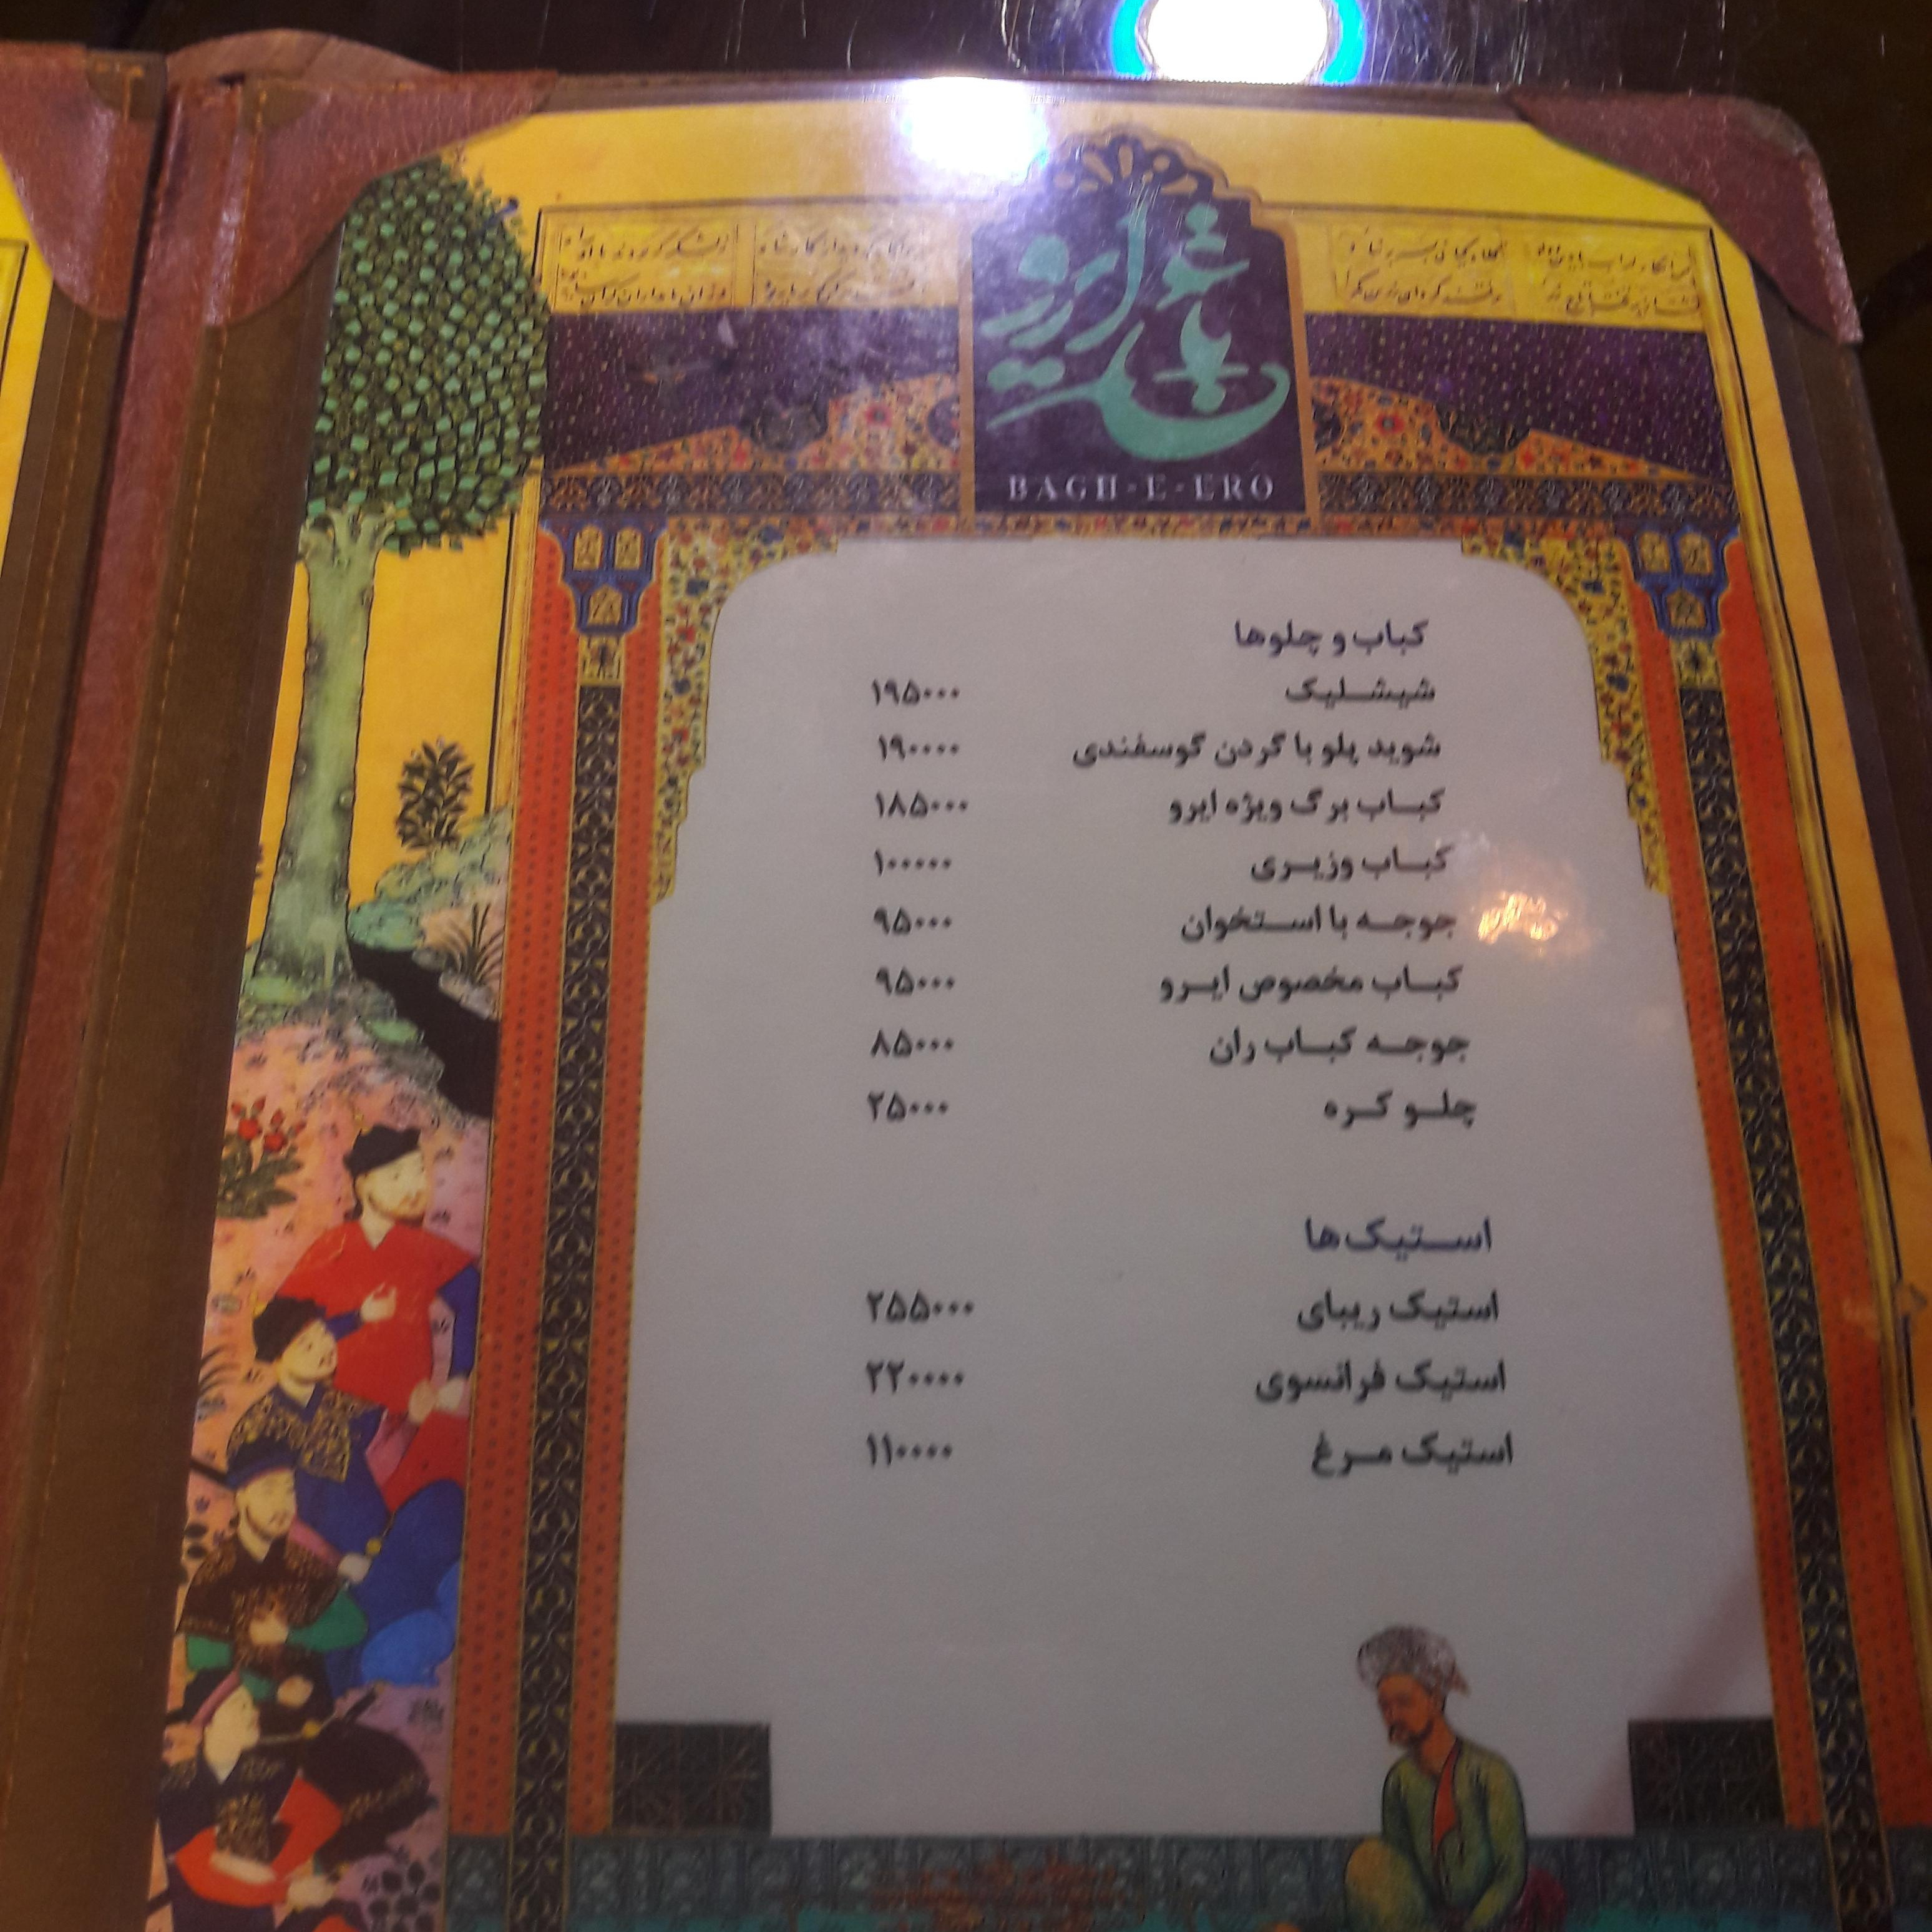 باغ ایرو
BAGH-E-ERO
کباب و چلوها
شیشلیک ۱۹۵۰۰۰
شوید پلو با گردن گوسفندی ۱۹۰۰۰۰
کباب برگ ویژه ایرو ۱۸۵۰۰۰
کباب وزیری ۱۰۰۰۰۰
جوجه با استخوان ۹۵۰۰۰
کباب مخصوص ایرو ۹۵۰۰۰
جوجه کباب ران ۸۵۰۰۰
چلو کره ۲۵۰۰۰
استیک‌ها
استیک ریبای ۲۵۵۰۰۰
استیک فرانسوی ۲۲۰۰۰۰
استیک مرغ ۱۱۰۰۰۰